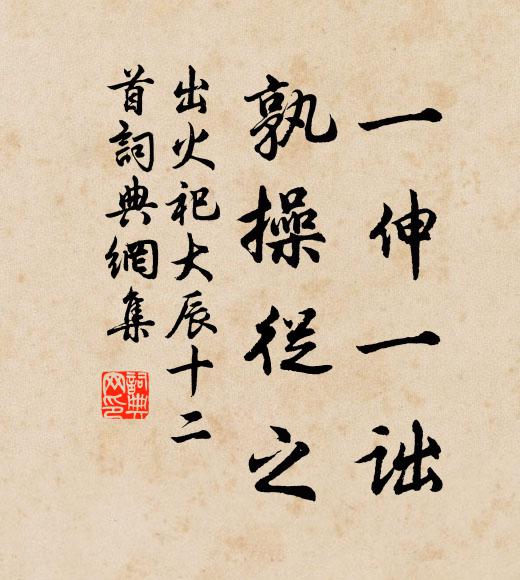 一伸一詘
孰操從之
出火祀大辰十二
首詞典網集
詞典
网印